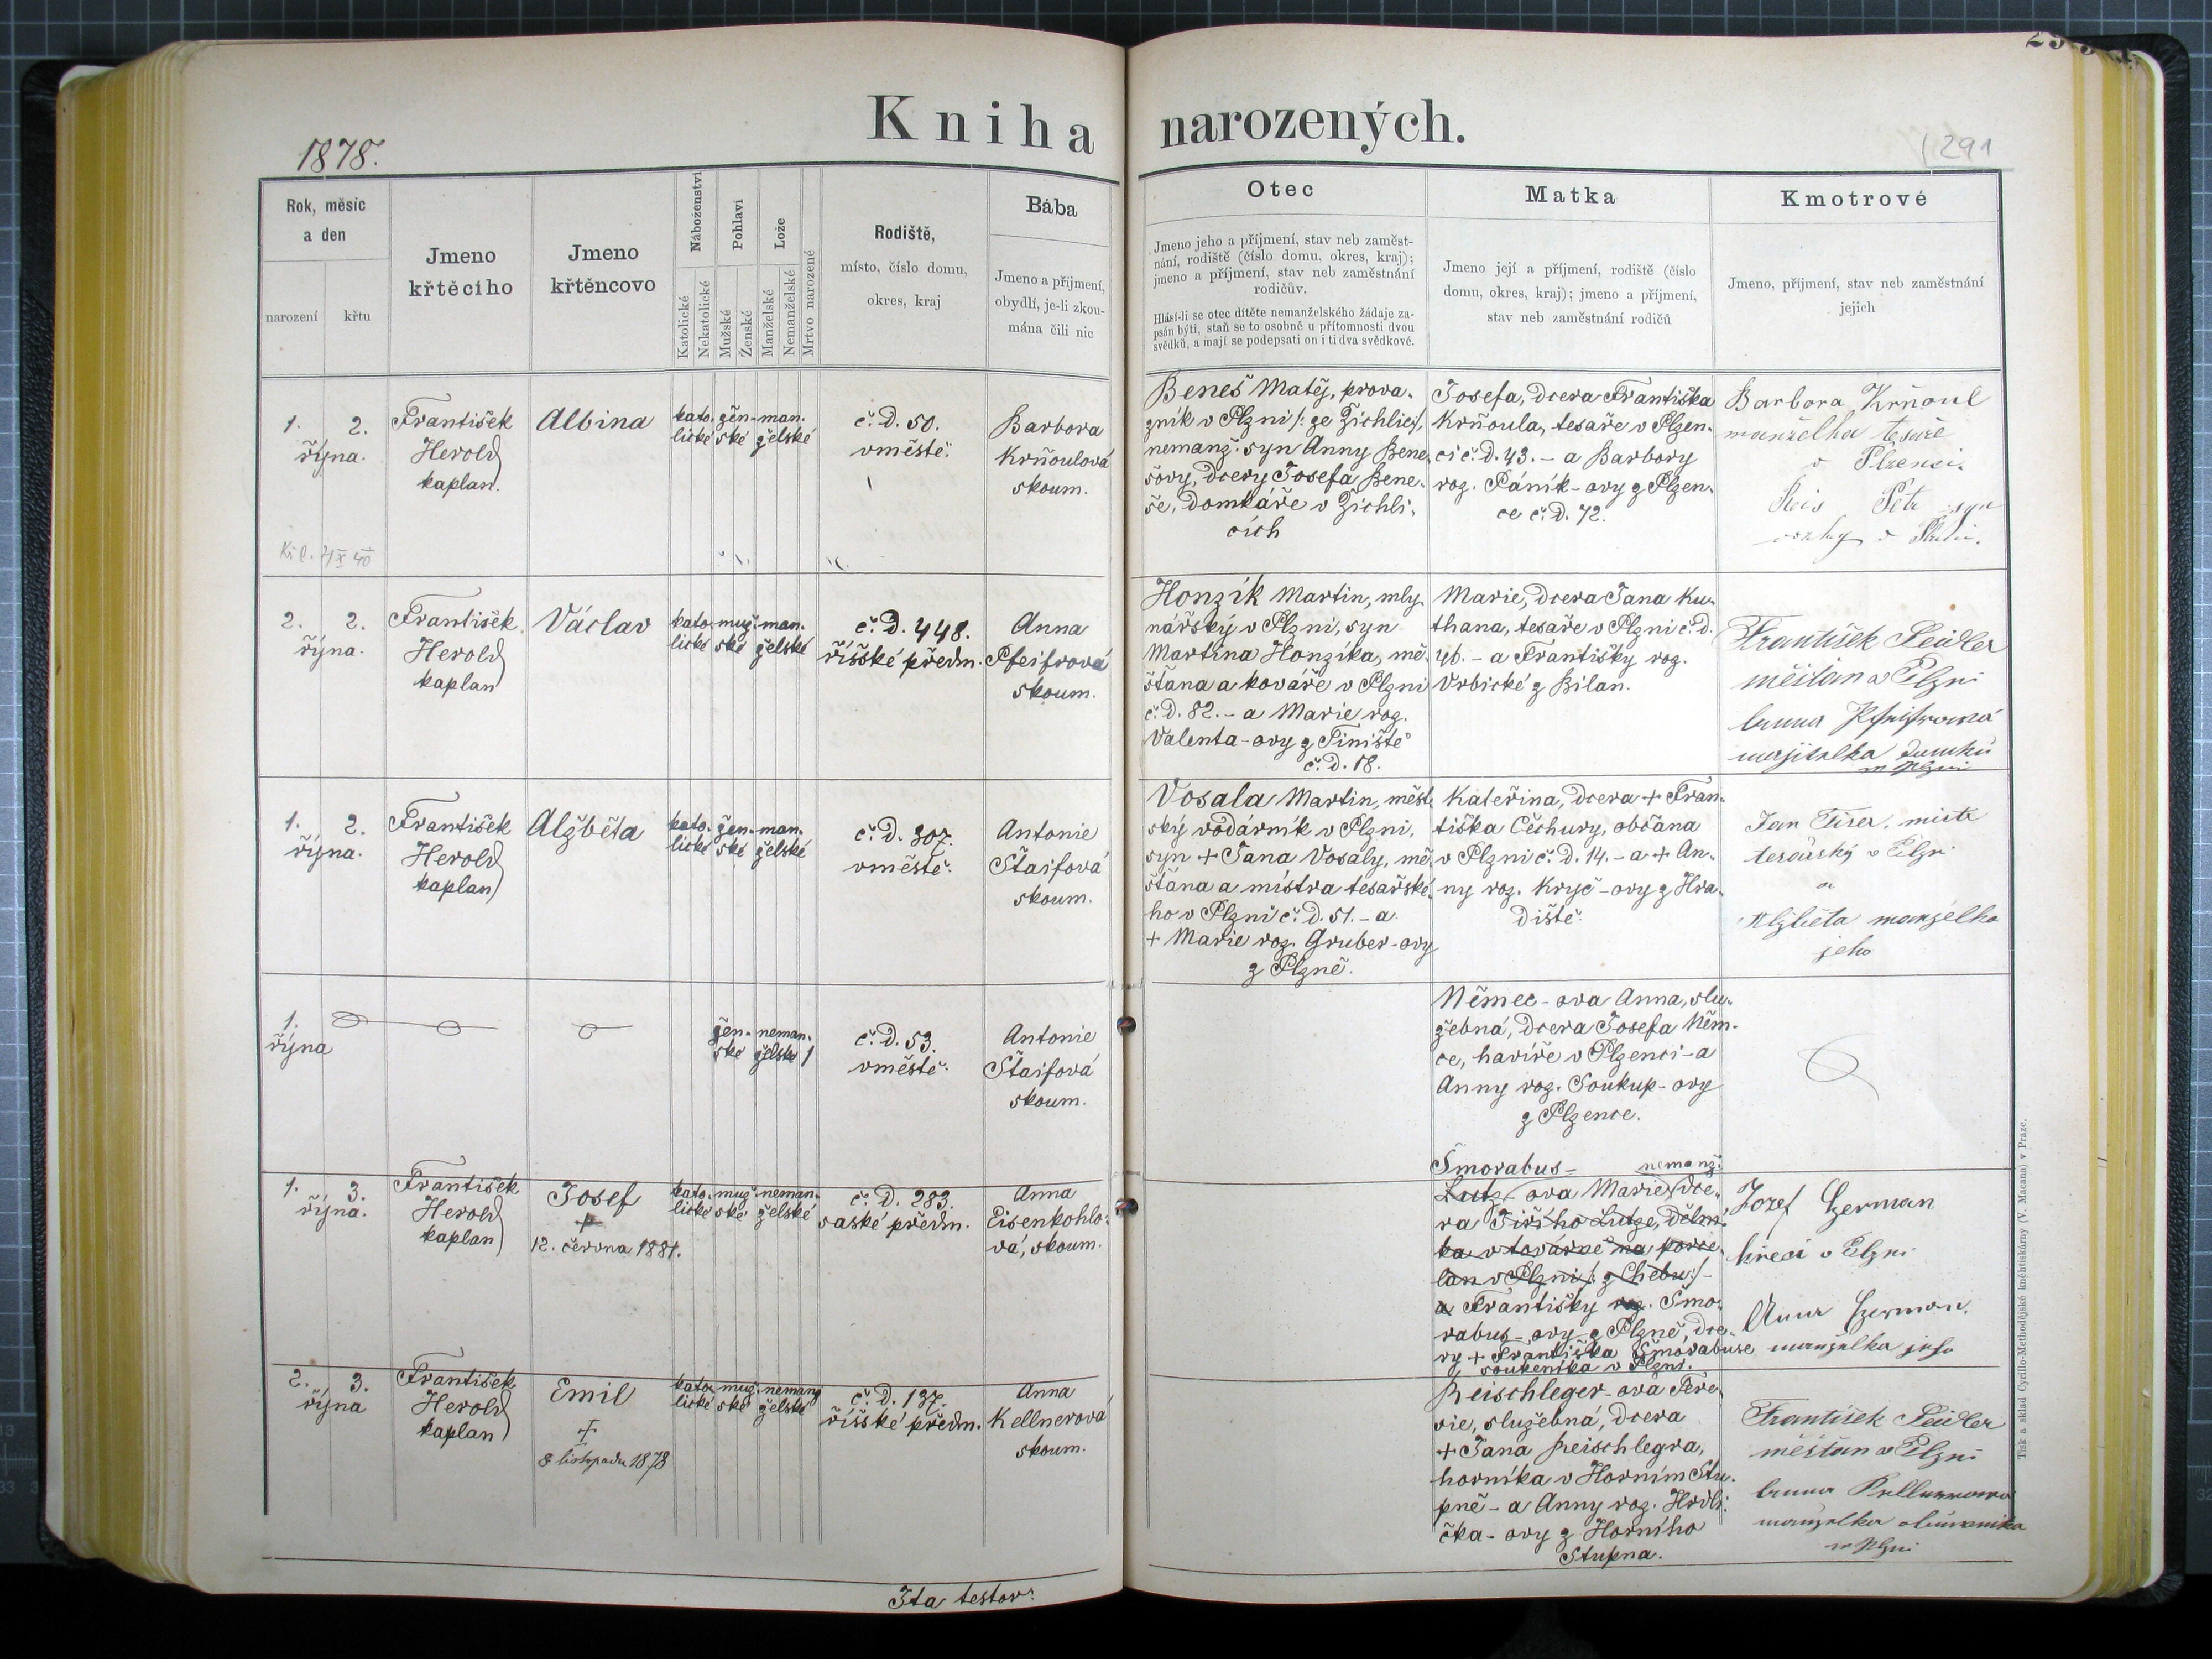 Kniha narozených.
1878.
(291
Rok, měsíc
a den
narození
křtu
Jmeno
křtěcího
Jmeno
křtěncovo
Náboženství
Katolické
Nekatolické
Pohlaví
Mužské
Ženské
Lože
Manželské
Nemanželské
Mrtvo narozené
Rodiště,
místo, číslo domu,
okres, kraj
Bába
Jmeno a příjmení,
obydlí, je-li zkou-
mána čili nic
Otec
Jmeno jeho a příjmení, stav neb zaměst-
nání, rodiště (číslo domu, okres, kraj);
jmeno a příjmení, stav neb zaměstnání
rodičův.
Hlásí-li se otec dítěte nemanželského žádaje za-
psán býti, staň se to osobně u přítomnosti dvou
svědků, a mají se podepsati on i ti dva svědkové.
Matka
Jmeno její a příjmení, rodiště (číslo
domu, okres, kraj); jmeno a příjmení,
stav neb zaměstnání rodičů
Kmotrové
Jmeno, příjmení, stav neb zaměstnání
jejich
1. 2.
října.
František
Herold
kaplan.
Albina
kato- žen- man-
lické ské želské
č. D. 50.
v městě.
Barbora
Krňoulová
skoum.
Beneš Matěj, prova-
zník v Plzni /: ze Žichlic :/,
nemanž. syn Anny Bene-
šovy, dcery Josefa Bene-
še, domkáře v Žichli-
cích
Josefa, dcera Františka
Krňoula, tesaře v Plzen-
ci č. D. 43. - a Barbory
roz. Páník-ovy z Plzen-
ce č. D. 72.
Barbora Krňoul
manželka tesaře
v Plzenci.
Petr syn
2. 2.
října.
František
Herold
kaplan
Václav
kato- muž- man-
lické ské želské
č. D. 448.
říšské předm.
Anna
Pfeifrová
skoum.
Honzík Martin, mly-
nářský v Plzni, syn
Martina Honzíka, mě-
šťana a kováře v Plzni
č. D. 82. - a Marie roz.
Valenta-ovy z Tiniště
č. D. 18.
Marie, dcera Jana Ku-
thana, tesaře v Plzni č. D.
46. - a Františky roz.
Vrbické z Bilan.
František Peidler
měšťan v Plzni
Anna Pfeifrová
majitelka domku
v Plzni
1. 2.
října.
František
Herold
kaplan
Alžběta
kato- žen- man-
lické ské želské
č. D. 307.
v městě.
Antonie
Štaifová
skoum.
Vosala Martin, měst-
ský vodárník v Plzni,
syn + Jana Vosaly, mě-
šťana a mistra tesařské-
ho v Plzni č. D. 51. - a
+ Marie roz. Gruber-ovy
z Plzně.
Kateřina, dcera + Fran-
tiška Čechury, občana
v Plzni č. D. 14. - a + An-
ny roz. Kryč-ovy z Hra-
diště.
Jan mistr
tesařský v Plzni
a
Alžběta manželka
jeho
1.
října
žen- neman-
ské želské 1
č. D. 53.
v městě.
Antonie
Štaifová
skoum.
Němec-ova Anna, slu-
žebná, dcera Josefa Něm-
ce, havíře v Plzenci - a
Anny roz. Soukup-ovy
z Plzence.
1. 3.
října.
František
Herold
kaplan
Josef
+
12. června 1881.
kato- muž- neman-
lické ské želské
č. D. 283.
saské předm.
Anna
Eisenkohlo-
vá, skoum.
Smorabus- nemanž.
Lutz-ova Marie, dce-
ra Jiřího Lutze, dělní-
ka v továrně na porce-
lan v Plzni /: z Chebu :/ -
a Františky roz. Smo-
rabus-ovy z Plzně, dce-
ry + Františka Smorabuse
soukeníka v Plzni.
Jozef German
krejčí v Plzni
Anna German,
manželka jeho
2. 3.
října
František
Herold
kaplan
Emil
+
8 listopadu 1878
kato- muž- nemanž
lické ské želské
č. D. 137.
říšské předm.
Anna
Kellnerová
skoum.
Reischleger-ova Tere-
zie, služebná, dcera
+ Jana Reischlegra,
horníka v Horním Stu-
pně - a Anny roz. Hrdli-
čka-ovy z Horního
Stupna.
František Peidler
měšťan v Plzni
Anna Kellnerova
manželka
v Plzni
Ita testor:
Tisk a sklad Cyrillo-Methodějské kněhtiskárny (V. Macana) v Praze.